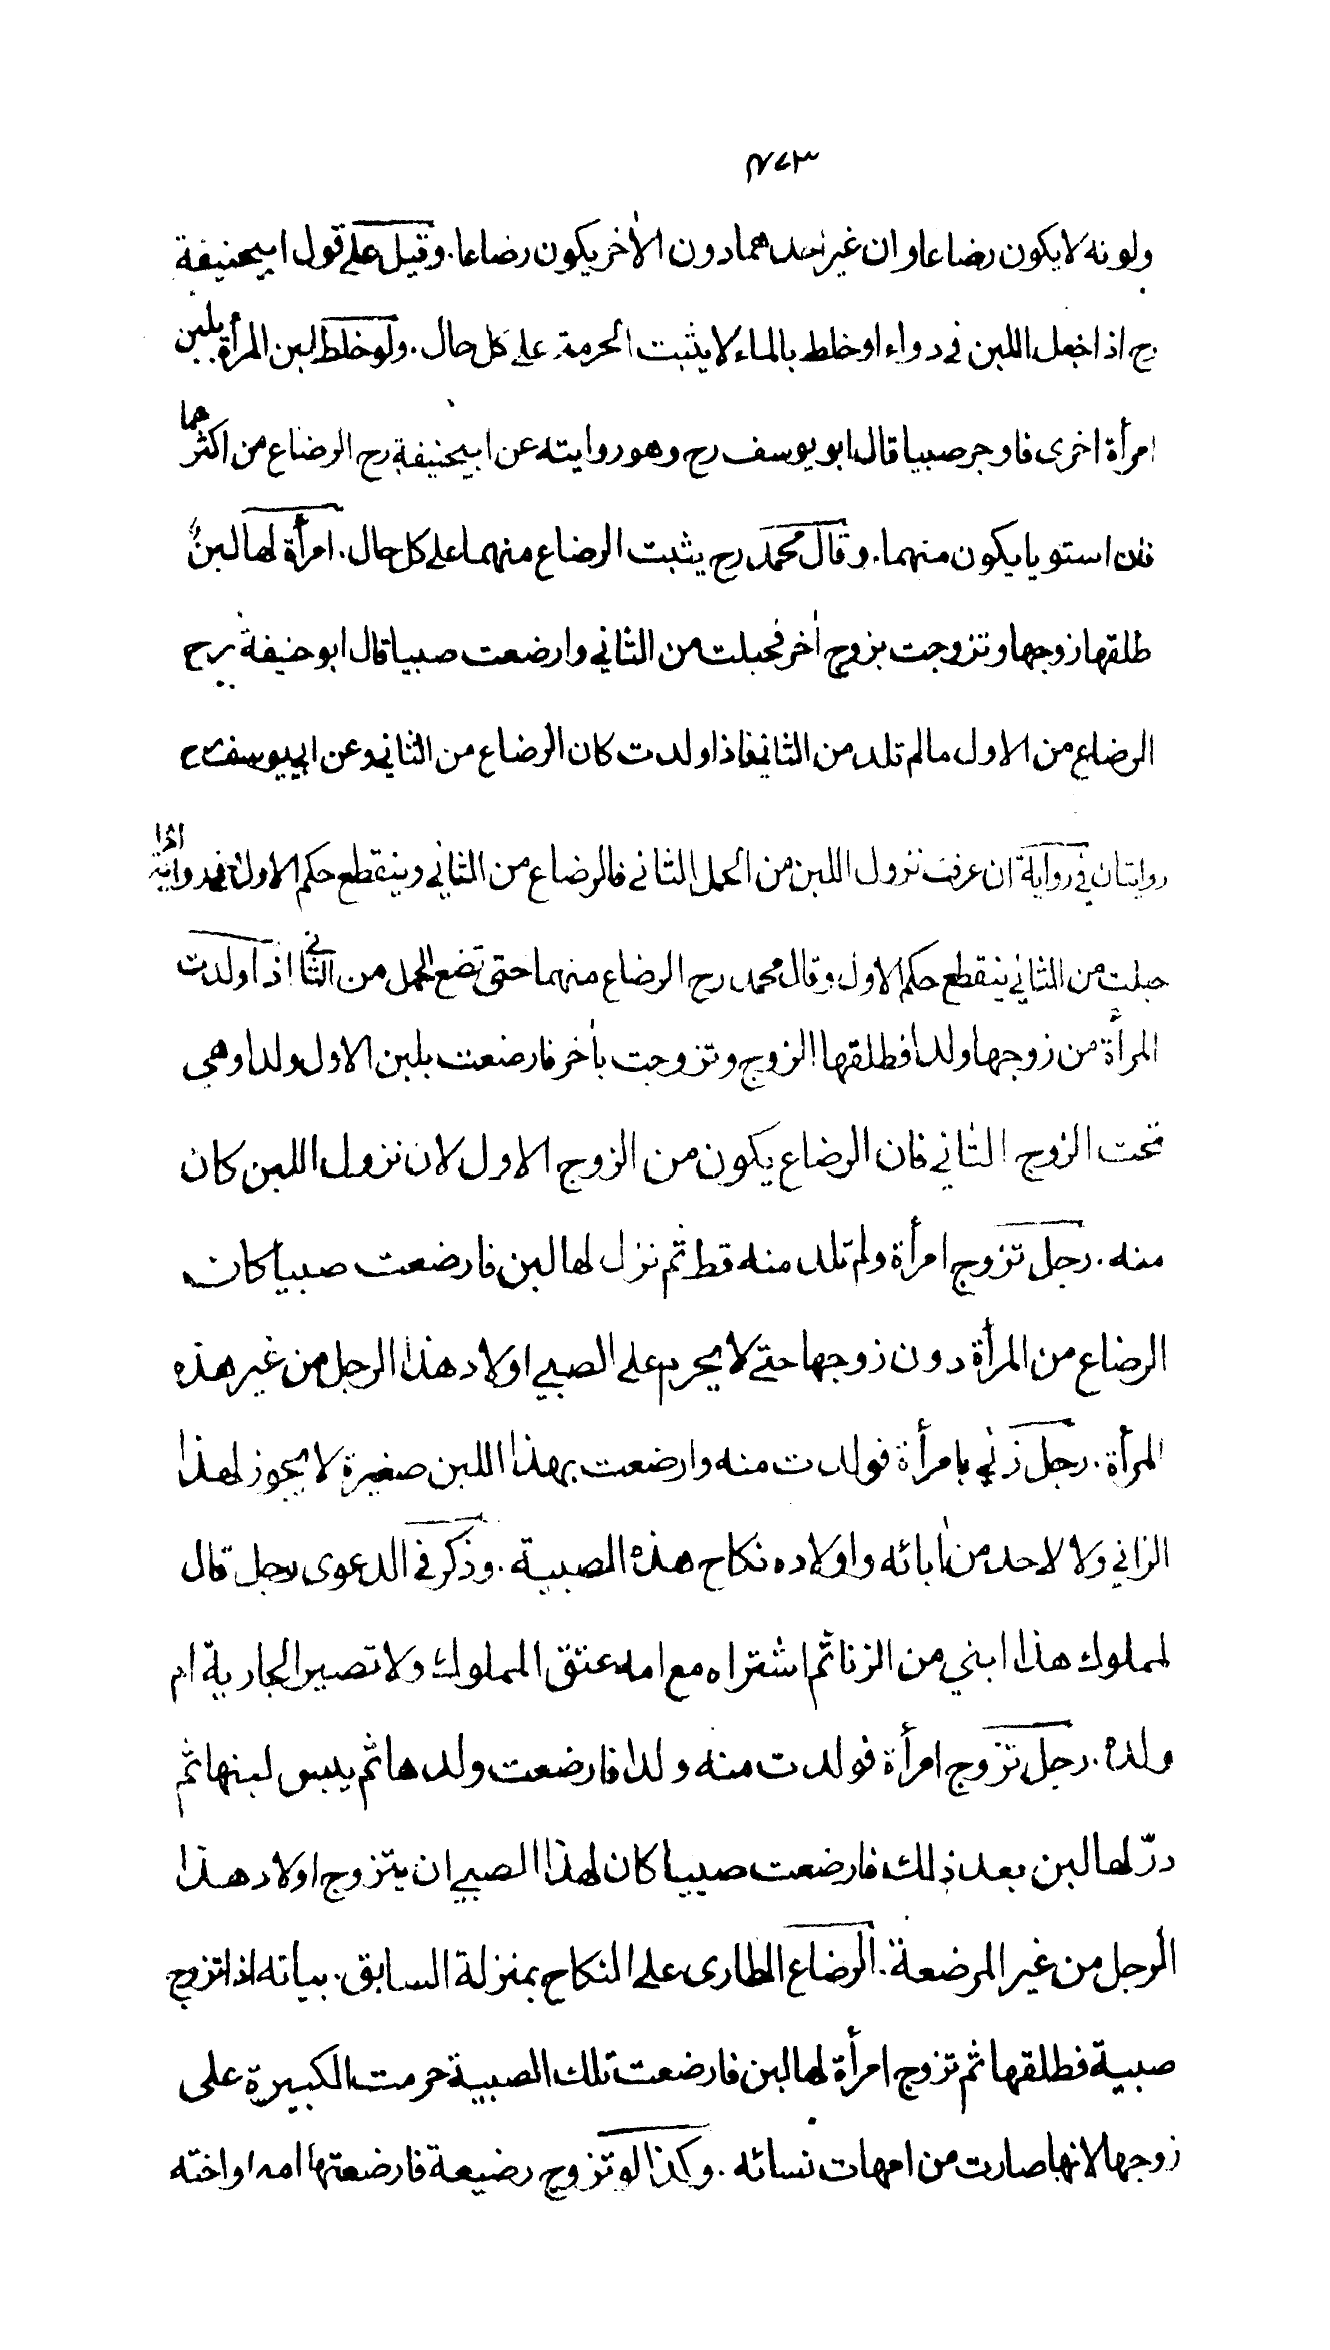 ٤٧٣
ولونه لا يكون رضاعا وان غير احدهما دون الأخر يكون رضاعا. وقيل على قول ابيحنيفة
رح اذا جعل اللبن في دواء او خلط بالماء لا يثبت الحرمة على كل حال. ولو خلط لبن المرأة بلبن
امرأة اخرى فاوجر صبيا قال ابو يوسف رح وهو روايته عن ابيحنيفة رح الرضاع من اكثرهما
فان استويا يكون منهما. وقال محمد رح يثبت الرضاع منهما على كل حال. امرأة لها لبنٌ
طلقها زوجها وتزوجت بزوج أخر فحبلت من الثاني وارضعت صبيا قال ابو حنيفة رح
الرضاع من الاول مالم تلد من الثاني فاذا ولدت كان الرضاع من الثاني وعن ابي يوسف رح
روايتان في رواية ان عرفت نزول اللبن من الحمل الثاني فالرضاع من الثاني وينقطع حكم الاول وفي رواية اذا
حبلت من الثاني ينقطع حكم الاول وقال محمد رح الرضاع منهما حتى تضع الحمل من الثاني اذا ولدت
المرأة من زوجها ولدا فطلقها الزوج وتزوجت بأخر فارضعت بلبن الاول ولدا وهي
تحت الزوج الثاني فان الرضاع يكون من الزوج الاول لان نزول اللبن كان
منه. رجل تزوج امرأة ولم تلد منه قط ثم نزل لها لبن فارضعت صبيا كان
الرضاع من المرأة دون زوجها حتى لا يحرم على الصبي اولاد هذا الرجل من غير هذه
المرأة. رجل زني بامرأة فولدت منه وارضعت بهذا اللبن صغيرة لا يجوز لهذا
الزاني ولا لاحد من أبائه واولاده نكاح هذه الصبية. وذكر في الدعوى رجل قال
لمملوك هذا ابني من الزنا ثم اشتراه مع امه عتق المملوك ولا تصير الجارية ام
ولده. رجل تزوج امرأة فولدت منه ولدا فارضعت ولدها ثم يبس لبنها ثم
درّ لها لبن بعد ذلك فارضعت صبيا كان لهذا الصبي ان يتزوج اولاد هذا
الرجل من غير المرضعة. الرضاع الطارى على النكاح بمنزلة السابق. بيانه اذا تزوج
صبية فطلقها ثم تزوج امرأة لها لبن فارضعت تلك الصبية حرمت الكبيرة على
زوجها لانها صارت من امهات نسائه. وكذا لو تزوج رضيعة فارضعتها امه او اخته